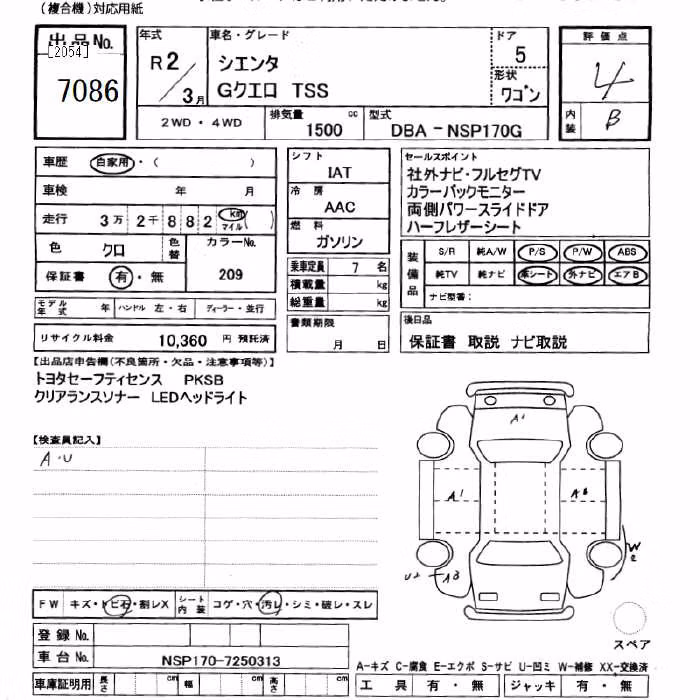 (複合機)対応用紙
出品No.
[2054]
7086
年式
R2/3月
車名・グレード
シエンタ
Gクエロ TSS
ドア
5
形状
ワゴン
評価点
4
内装
B
2WD・4WD
排気量
1500 cc
型式
DBA-NSP170G
車歴 自家用・( )
車検 年 月
走行 3万2千882 km マイル ( )
色 クロ 色替
カラーNo.
209
保証書 有・無
モデル年式 年 ハンドル 左・右 ディーラー・並行
リサイクル料金 10,360 円 預託済
シフト
IAT
冷房
AAC
燃料
ガソリン
乗車定員 7 名
積載量 kg
総重量 kg
書類期限
月 日
セールスポイント
社外ナビ・フルセグTV
カラーバックモニター
両側パワースライドドア
ハーフレザーシート
装備品
S/R 純A/W P/S P/W ABS
純TV 純ナビ 革シート 外ナビ エアB
ナビ型番:
後日品
保証書 取説 ナビ取説
【出品店申告欄(不良箇所・欠品・注意事項等)】
トヨタセーフティセンス PKSB
クリアランスソナー LEDヘッドライト
【検査員記入】
A・U
A1
A1
U2 A3
W2
FW キズ・トビ石・割レX シート内装 コゲ・穴・汚レ・シミ・破レ・スレ
登録No.
車台No. NSP170-7250313
車庫証明用 長さ cm 幅 cm 高さ cm
スペア
A-キズ C-腐食 E-エクボ S-サビ U-凹ミ W-補修 XX-交換済
工具 有・無 ジャッキ 有・無